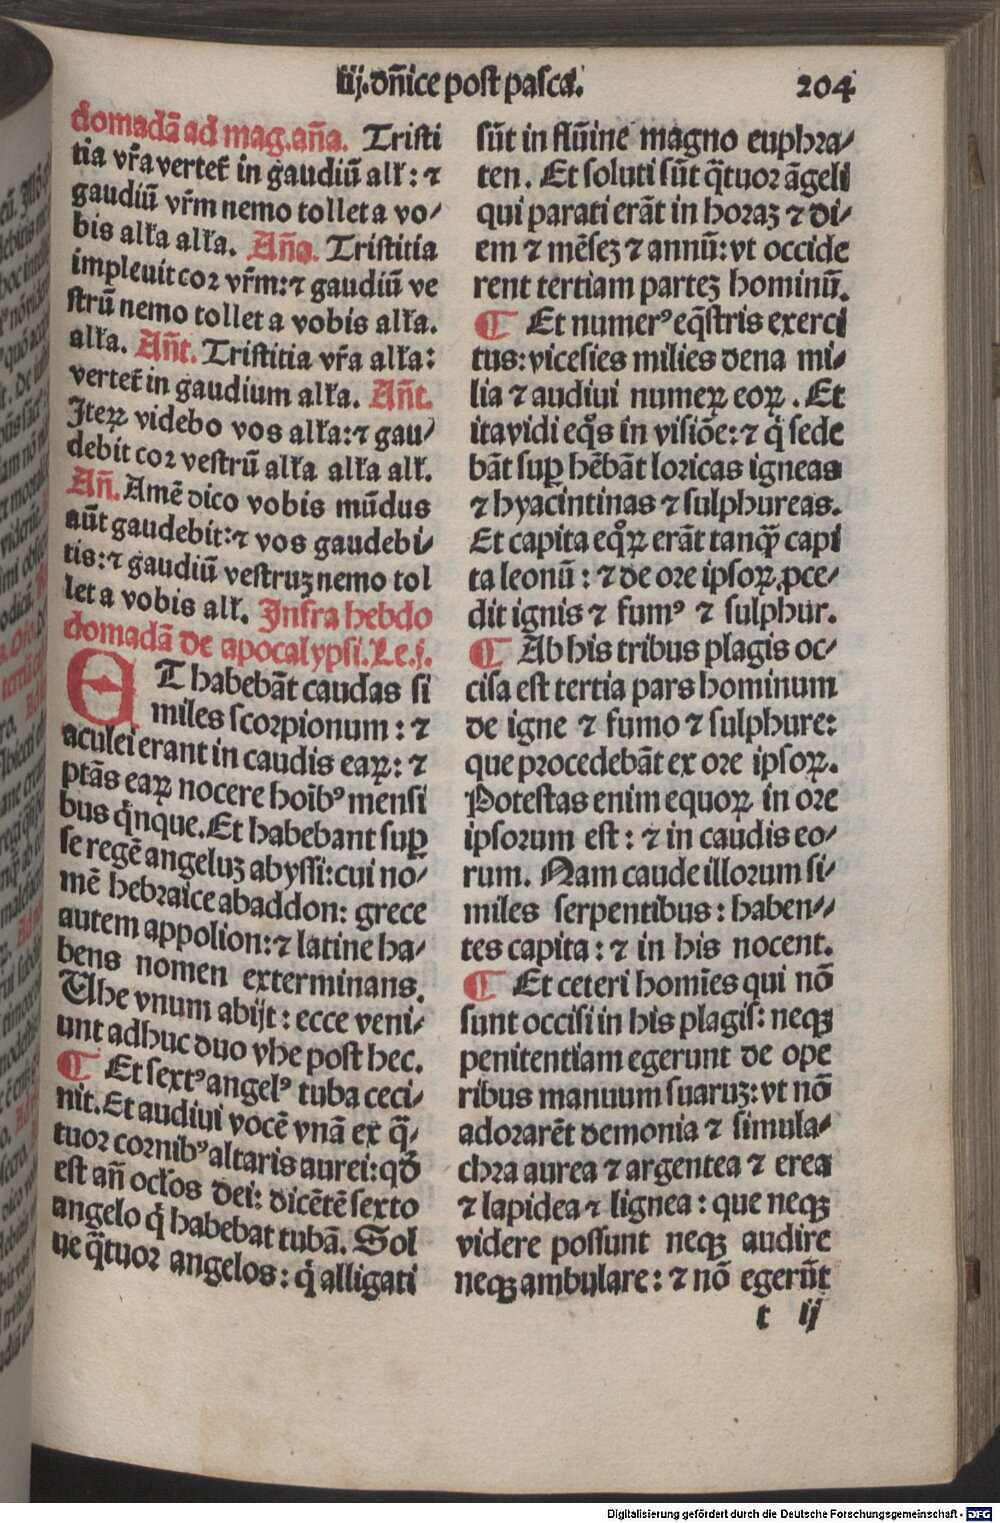 iij. dn̄ice post pasca.
204
domadā ad mag. an̄a. Tristi
tia vr̄a vertet̄ in gaudiū alł: ⁊
gaudiū vr̄m nemo tollet a vo⸗
bis alła alła. An̄a. Tristitia
impleuit cor vr̄m: ⁊ gaudiū ve
strū nemo tollet a vobis alła.
alła. An̄t. Tristitia vr̄a alła:
vertet̄ in gaudium alła. An̄t.
Iteꝝ videbo vos alła: ⁊ gau⸗
debit cor vestrū alła alła alł.
An̄. Amē dico vobis mūdus
aūt gaudebit: ⁊ vos gaudebi⸗
tis: ⁊ gaudiū vestruꝫ nemo tol
let a vobis alł. Infra hebdo
domadā de apocalypsi. Le. j.
ET habebāt caudas si
miles scorpionum: ⁊
aculei erant in caudis eaꝝ: ⁊
ptās eaꝝ nocere hoībꝰ mensi
bus qͥnque. Et habebant suꝑ
se regē angeluꝫ abyssi: cui no⸗
mē hebraice abaddon: grece
autem appolion: ⁊ latine ha⸗
bens nomen exterminans.
Uhe vnum abijt: ecce veni⸗
unt adhuc duo vhe post hec.
¶ Et sextꝰ angelꝰ tuba ceci⸗
nit. Et audiui vocē vnā ex qͣ⸗
tuor cornibꝰ altaris aurei: qđ
est an̄ ocłos dei: dicētē sexto
angelo qͥ habebat tubā. Sol
ue qͣtuor angelos: qͥ alligati
sūt in flūine magno euphra⸗
ten. Et soluti sūt qͣtuor āgeli
qui parati erāt in horaꝫ ⁊ di⸗
em ⁊ mēseꝫ ⁊ annū: vt occide
rent tertiam parteꝫ hominū.
¶ Et numerꝰ eqͣstris exerci
tus: vicesies milies dena mi⸗
lia ⁊ audiui numeꝝ eoꝝ. Et
ita vidi eqͦs in visiōe: ⁊ qͥ sede
bāt suꝑ hēbāt loricas igneas
⁊ hyacintinas ⁊ sulphureas.
Et capita eqͦꝝ erāt tanqͣ̄ capi
ta leonū: ⁊ de ore ipsoꝝ ꝓce⸗
dit ignis ⁊ fumꝰ ⁊ sulphur.
¶ Ab his tribus plagis oc⸗
cisa est tertia pars hominum
de igne ⁊ fumo ⁊ sulphure:
que procedebāt ex ore ipsoꝝ.
Potestas enim equoꝝ in ore
ipsorum est: ⁊ in caudis eo⸗
rum. Nam caude illorum si⸗
miles serpentibus: haben⸗
tes capita: ⁊ in his nocent.
¶ Et ceteri homīes qui nō
sunt occisi in his plagis: neqꝫ
penitentiam egerunt de ope
ribus manuum suaruꝫ: vt nō
adorarēt demonia ⁊ simula⸗
chra aurea ⁊ argentea ⁊ erea
⁊ lapidea ⁊ lignea: que neqꝫ
videre possunt neqꝫ audire
neqꝫ ambulare: ⁊ nō egerūt
t ij
Digitalisierung gefördert durch die Deutsche Forschungsgemeinschaft - DFG